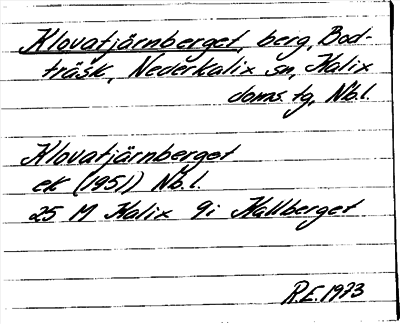 Klovatjärnberget, berg, Bod-
träsk, Nederkalix sn, Kalix
doms. tg, Nb.l.
Klovatjärnberget
ek (1951) Nb.l.
25 M Kalix 9i Kallberget
R.E. 1973